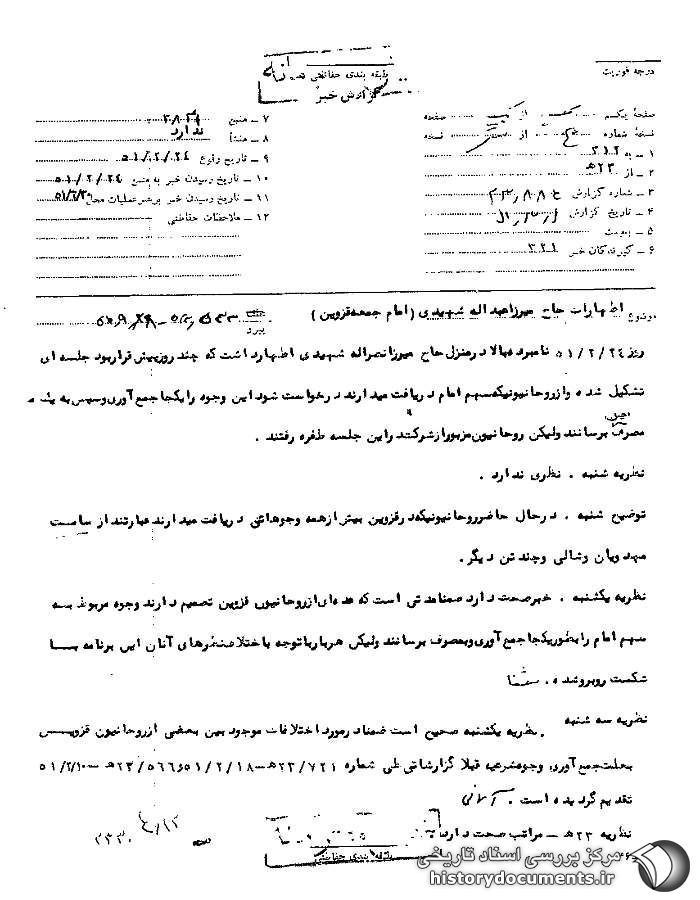 درجه فوریت
طبقه بندی حفاظتی
گزارش خبر
صفحهٔ یکم از صفحه
نسخهٔ شماره از نسخه
۱ ـ به ۳۱۲
۲ ـ از ۲۳ه‍
۳ ـ شماره گزارش
۴ ـ تاریخ گزارش
۵ ـ پیوست
۶ ـ گیرندگان خبر ۳۲۱
۷ ـ منبع
۸ ـ منشأ ندارد
۹ ـ تاریخ وقوع ۵۱/۲/۲۴
۱۰ ـ تاریخ رسیدن خبر به منبع ۵۱/۲/۲۴
۱۱ ـ تاریخ رسیدن خبر برهبر عملیات محل
۱۲ ـ ملاحظات حفاظتی
موضوع اظهارات حاج میرزاعبداله شهیدی (امام جمعه قزوین)
روز ۵۱/۲/۲۴ نامبرده بالا در منزل حاج میرزانصراله شهیدی اظهار داشت که چند روز پیش قرار بود جلسه ای
تشکیل شده و از روحانیونیکه سهم امام دریافت میدارند درخواست شود این وجوه را یکجا جمع آوری و سپس به
مصرف برسانند ولیکن روحانیون مزبور از شرکت در این جلسه طفره رفتند .
نظریه شنبه . نظری ندارد .
توضیح شنبه . در حال حاضر روحانیونیکه در قزوین بیش از همه وجوهاتی دریافت میدارند عبارتند از سامت
مهدویان وشالی و چند تن دیگر.
نظریه یکشنبه . خبر صحت دارد ضمنا مدتی است که عده ای از روحانیون قزوین تصمیم دارند وجوه مربوط به
سهم امام را بطور یکجا جمع آوری و بمصرف برسانند ولیکن هربار با توجه با ختلاف نظرهای آنان این برنامه با
شکست روبرو شده .
نظریه سه شنبه . نظریه یکشنبه صحیح است ضمنا در مورد اختلافات موجود بین بعضی از روحانیون قزوین
بعلت جمع آوری وجوه شرعیه قبلا گزارشاتی طی شماره ۲۳/۷۲۱ه‍ـ ۵۱/۲/۱۸ و ۲۳/۵۶۶ه‍ـ ۵۱/۲/۱۰
تقدیم گردیده است .
نظریه ۲۳ه‍ ـ مراتب صحت دارد
طبقه بندی حفاظتی
مرکز بررسی اسناد تاریخی
historydocuments.ir